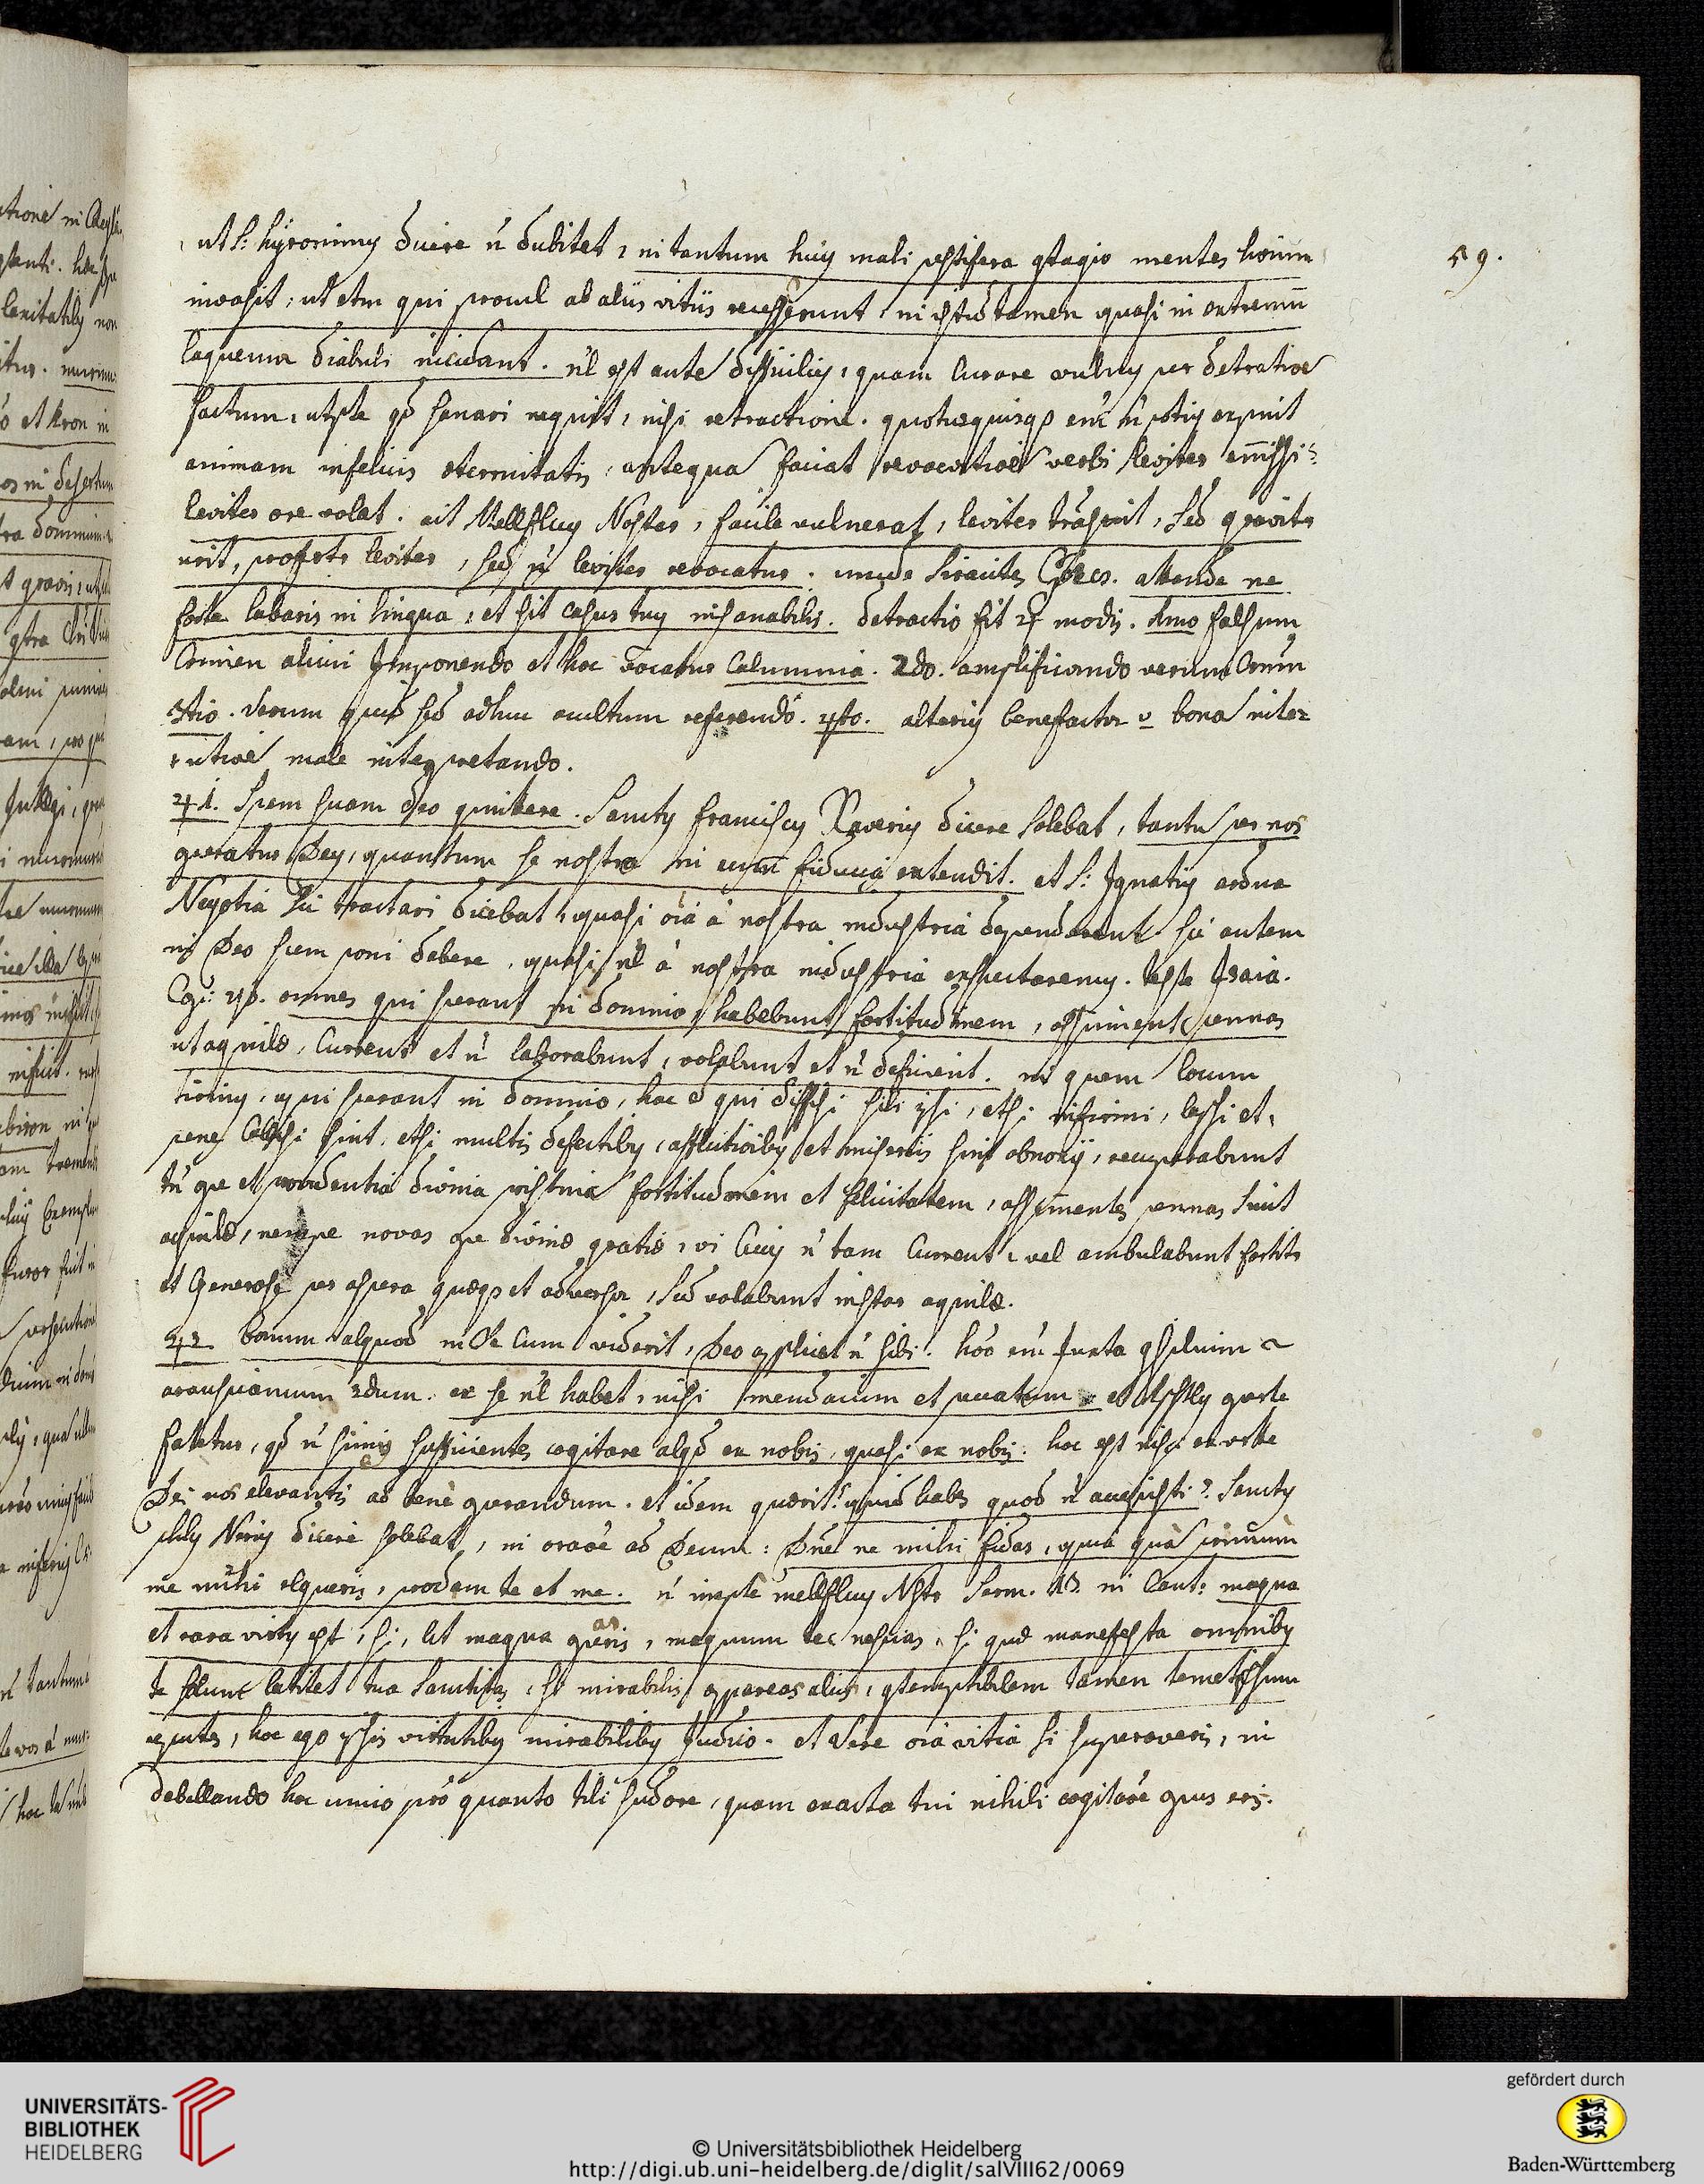 59.
ut S: Hÿronimy dicere ñ dubitet, in tantum huiy mali pestifera qtagio mentes hoium
invasit, ut etm qui procul ab aliis vitiis recesserunt in istud tamen quasi in extremum
laqueum diabuli incidant. nl est autē difficiliy, quam Curare vulny per detractioē
factum, utpte qd sanari nequit, nisi retractione. quotusquisq enī ñ potiy expuit
animam infelicis eternitatis, anteqūa faciat revocatioē verbi leviter emissi:
leviter ore volat. ait Mellifluy Noster, facile vulnerat, leviter trāsivit, sed graviter
urit, profertr leviter, sed ñ leviter revocatur. unde Siracites attende ne
forte labaris in lingua, et sit casus tuy insanabilis. detractio fit 4 modis. 1mo falsum
Crimen alicui Imponendo et hoc vocatur Calumnia. 2do. amplificando verum Crimen
3tio. Verum quid sed adhuc occultum referendo. 4to. alteriy benefacta v bona inter
ntioē male interpretando.
41. Spem suam deo qmittere. Sancty Franciscy Xaveriy dicere solebat, tantū per nos
operatur Dey, quantum se nostra in eum fiducia extendit. et S: Ignatiy ardua
Negotia sic tractari dicebat, quasi oīa à nostra industria dependerent sic autem
in Deo spem poni debere, quasi nl à nostra industria expectaremy. teste Isaia.
Cap: 40. omnes qui sperant in domino, habebunt fortitudinem, assument pennas
ut aquilæ, Current et ñ laborabunt, volabunt et ñ deficient. in quem locum
qui sperant in domino, hoc ē qui diffisi sibi ipsi, etsi infirmi, lassi et
pene Collapsi sint, etsi multis defectiby, afflictioīby et miseriis sint obnoxij, recuperabunt
tñ ope et providentia divina pristinā fortitudinem et felicitatem, assumentes pennas sicut
aquilæ, nempe novas ope divinæ gratiæ, vi Cuiy ñ tam Current, vel ambulabunt fortiter
et Generose per aspera quæq et adversa, sed volabunt instar aquilæ.
42 bonum alquod in Se Cum viderit, Deo applicet ñ sibi. hoō enī Juxta qsilium
arausicanum 2dum. ex se nl habet, nisi mendacium et peccatum et Apstly aperte
fatetur, qd ñ simus sufficientes cogitare alqd ex nobis, quasi ex nobis. hoc est nisi ex arte
Dei nos elevantis ad benè operandum. et idem quærit: quid habes quod ñ accepisti? Sancty
phily Neriy dicere solebat, in oraōe ad Deum: Dñe ne mihi fidas, quia quā primum
me mihi relqueris, prodam te et me. ñ inepte mellifluy Nstr Serm. 13. in Cant: magna
et rara virty est, si, ut magna operaris, magnum te nescias, si quæ manefesta omniby
te solum latitet tua Sanctitas, si mirabilis appareas aliis, qtemptibilem tamen temetipsum
reputes, hoc ego ipsis virtutiby mirabiliby Judico. et Vere oīa vitia si superaveris, in
debellando hoc unico pro quanto tibi sudore, quam exacta tui nihili cogitaōe opus erit.
UNIVERSITÄTS-
BIBLIOTHEK
HEIDELBERG
© Universitätsbibliothek Heidelberg
http://digi.ub.uni-heidelberg.de/diglit/salVIII62/0069
gefördert durch
Baden-Württemberg